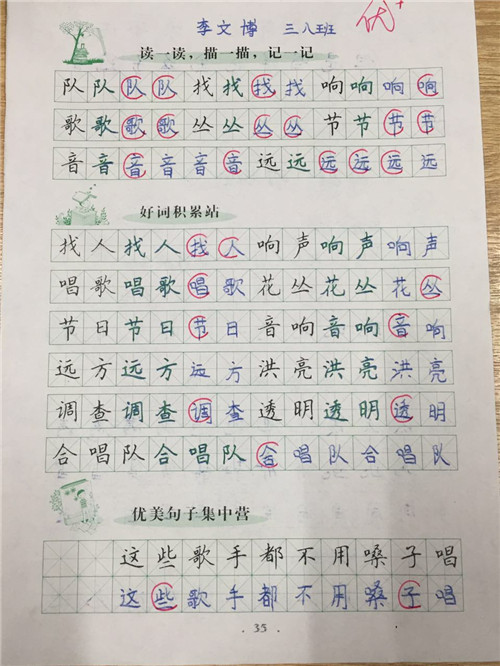 李文博 三八班 优+
读一读，描一描，记一记
队队队队 找找找找 响响响响
歌歌歌歌 丛丛丛丛 节节节节
音音音音音音 远远远远远远
好词积累站
找人找人找人 响声响声响声
唱歌唱歌唱歌 花丛花丛花丛
节日节日节日 音响音响音响
远方远方远方 洪亮洪亮洪亮
调查调查调查 透明透明透明
合唱队合唱队合唱队合唱队
优美句子集中营
这些歌手都不用嗓子唱
这些歌手都不用嗓子唱
35